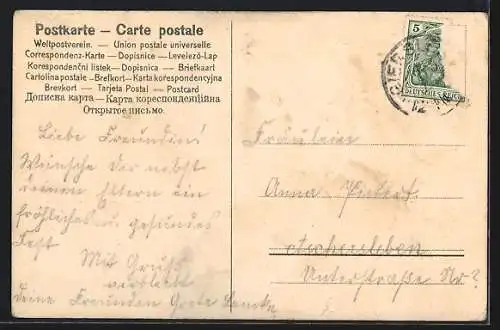 Postkarte – Carte postale
Weltpostverein. – Union postale universelle
Correspondenz-Karte – Dopisnice – Levelező-Lap
Korespondenční lístek – Dopisnica – Briefkaart
Cartolina postale – Brefkort – Karta korespondencyjna
Brevkort – Tarjeta Postal – Postcard
Дописна карта – Карта кореспонденційна
Открытое письмо.
5
DEUTSCHES REICH
Liebe Freundin!
Wünsche Dir nebst
deinen Eltern ein
fröhliches u. gesundes
Fest
Mit Gruß
verbleibt
deine Freundin Grete
Fräulein
Anna
Aschersleben
Unterstraße Nr ?